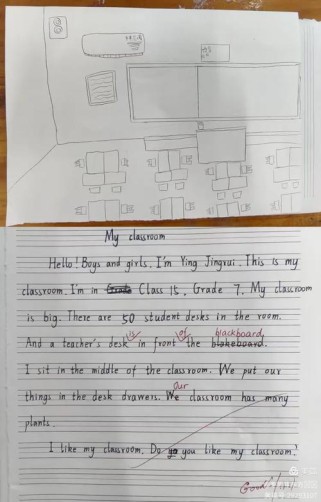 My classroom
Hello! Boys and girls. I'm Ying Jingrui. This is my
classroom. I'm in Class 15, Grade 7. My classroom
is big. There are 50 student desks in the room.
is of blackboard
And a teacher's desk in front the blakeboard.
I sit in the middle of the classroom. We put our
things in the desk drawers. We classroom has many
Our
plants.
I like my classroom. Do you like my classroom?
Good!